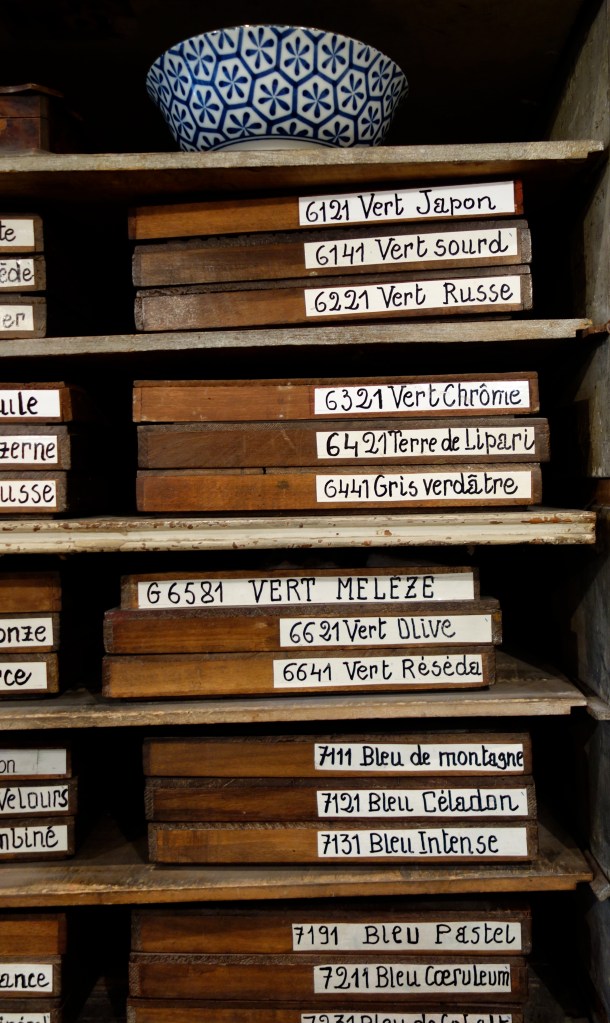 6121 Vert Japon
6141 Vert sourd
6221 Vert Russe
6321 Vert Chrôme
6421 Terre de Lipari
6441 Gris verdâtre
G6581 VERT MELÉZE
6621 Vert Olive
6641 Vert Réséda
Velours
7111 Bleu de montagne
7121 Bleu Céladon
7131 Bleu Intense
7191 Bleu Pastel
7211 Bleu Cœruleum